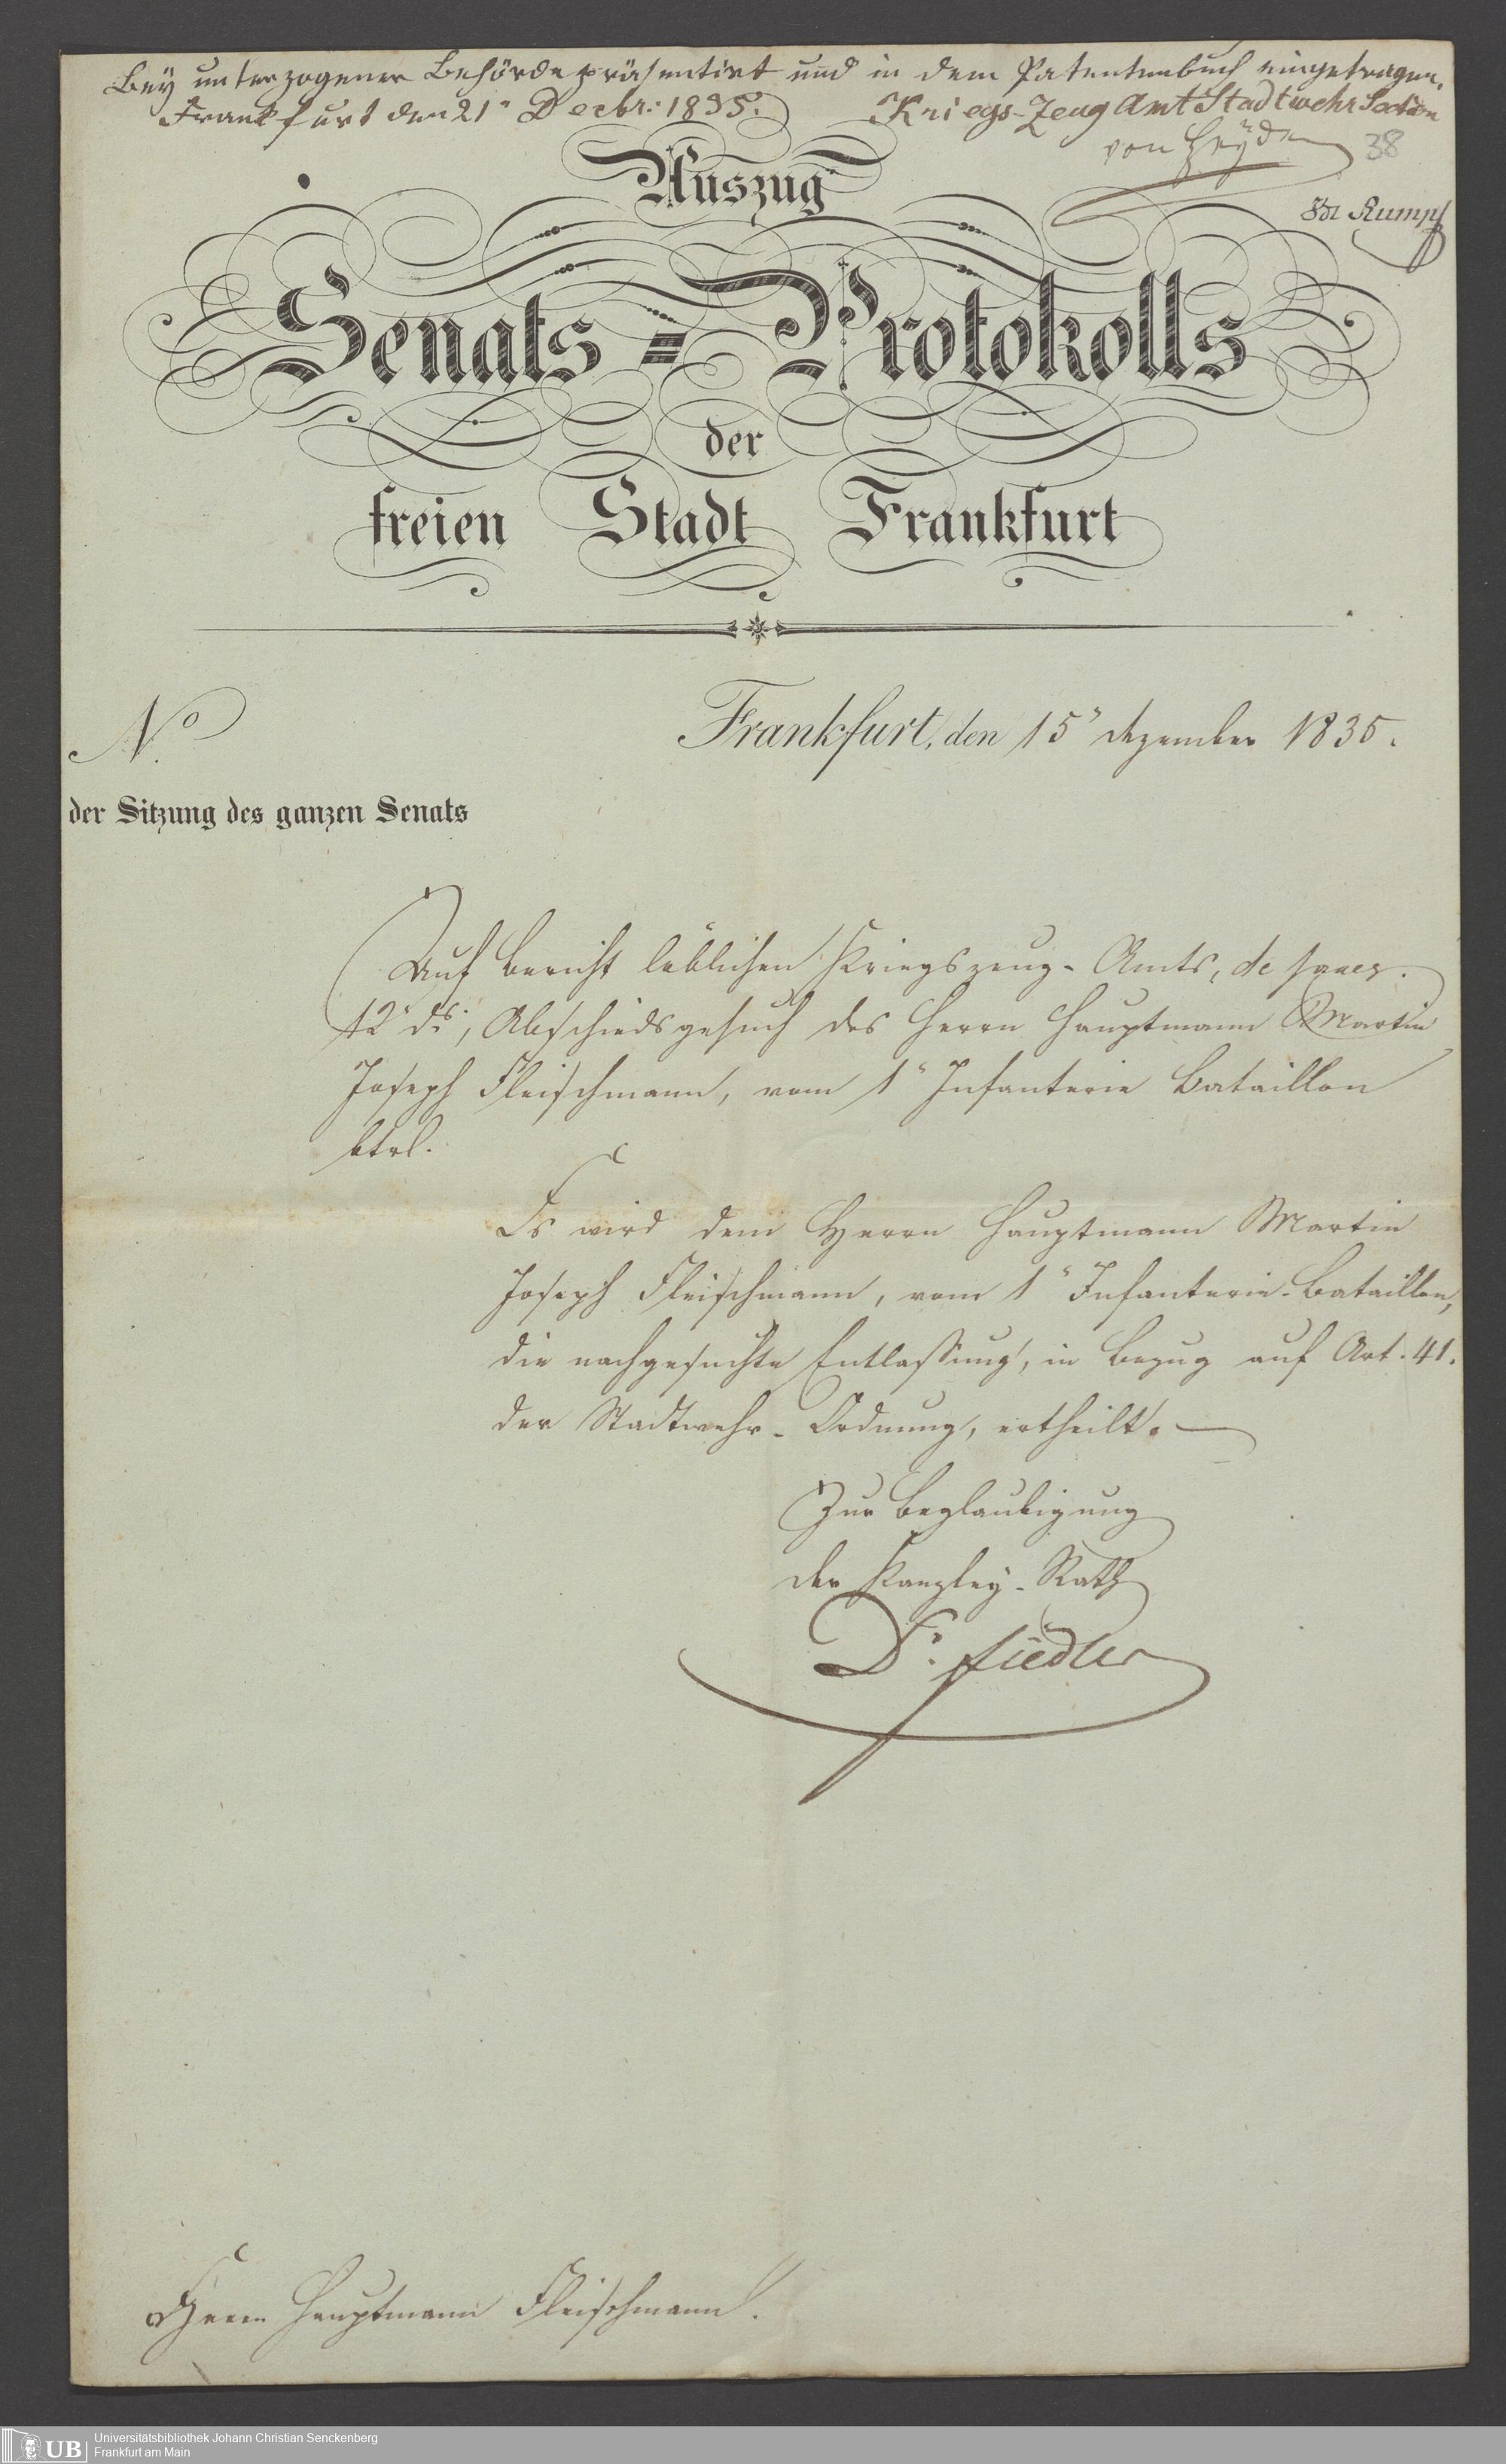 Bey unterzogener Behörde präsentirt und in dem Patentenbuch eingetragen.
Frankfurt den 21n Decbr: 1835.
Kriegs-Zeug Amt Stadtwehr Section
von Heyden
38
Rumpf
Auszug
Senats=Protokolls
der
freien Stadt Frankfurt
No
Frankfurt, den 15n Dezember 1835.
der Sitzung des ganzen Senats
Auf Bericht löblichen Kriegszeug-Amts, de praes.
12n ds., Abschiedsgesuch des Herrn Hauptmann Martin
Joseph Fleischmann, vom 1n Infanterie Bataillon
btrl.
Es wird dem Herrn Hauptmann Martin
Joseph Fleischmann, vom 1n Infanterie-Bataillon,
die nachgesuchte Entlassung, in Bezug auf Art. 41.
der Stadtwehr-Ordnung, ertheilt.
Zur Beglaubigung
Der Kanzley-Rath
Dr. Fiedler
Herrn Hauptmann Fleischmann.
UB
Universitätsbibliothek Johann Christian Senckenberg
Frankfurt am Main